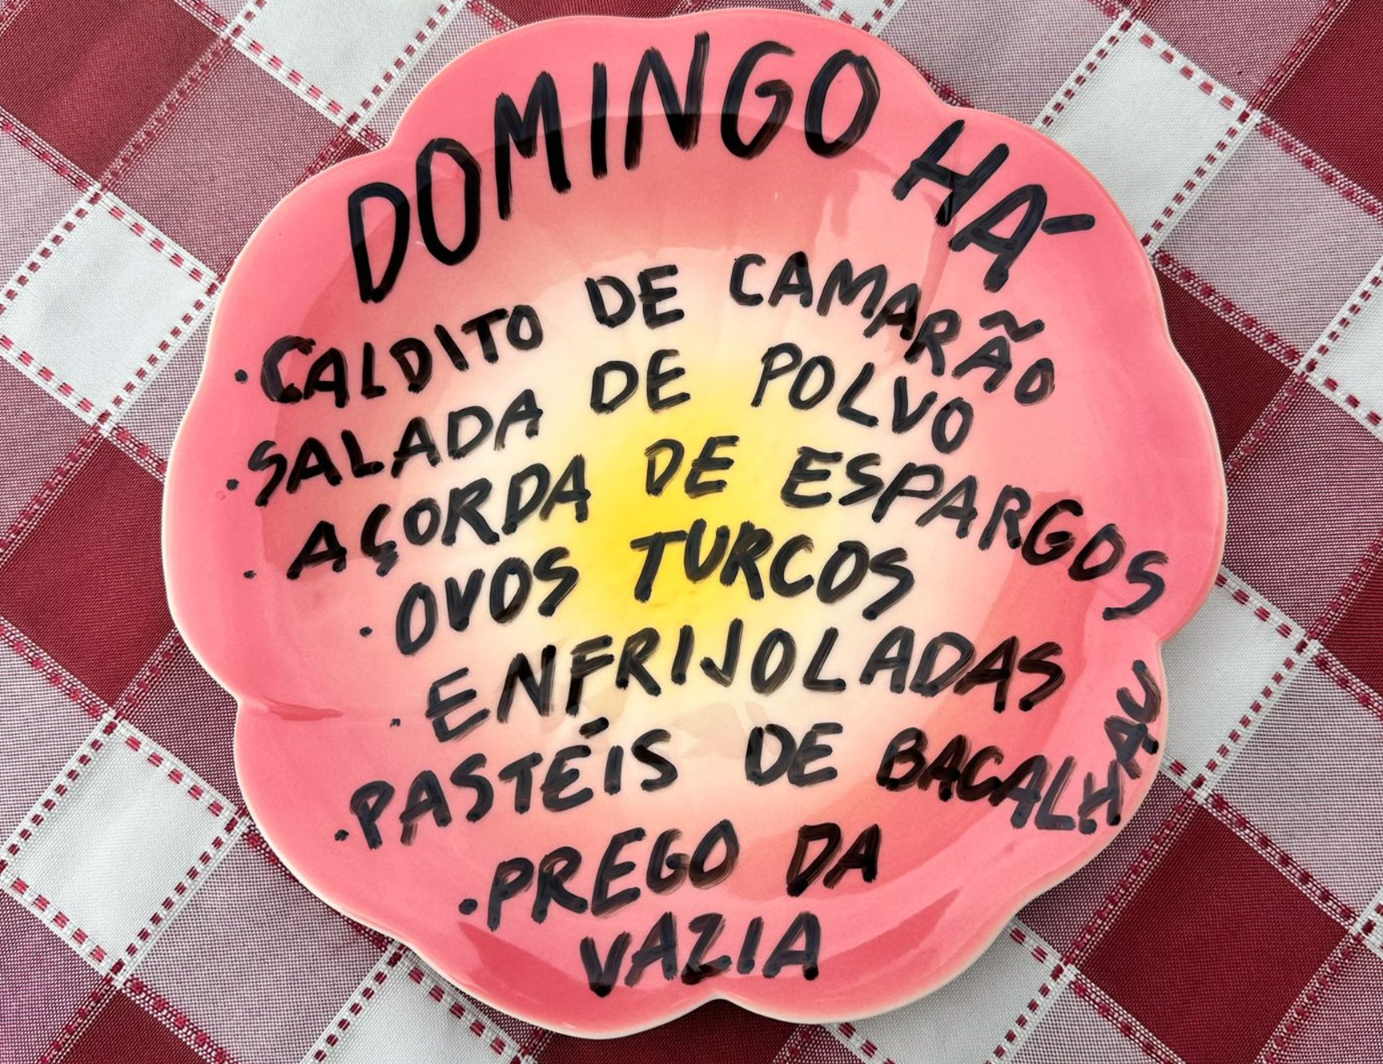 DOMINGO HÁ
· CALDITO DE CAMARÃO
· SALADA DE POLVO
· AÇORDA DE ESPARGOS
· OVOS TURCOS
· ENFRIJOLADAS
· PASTÉIS DE BACALHAU
· PREGO DA
VAZIA